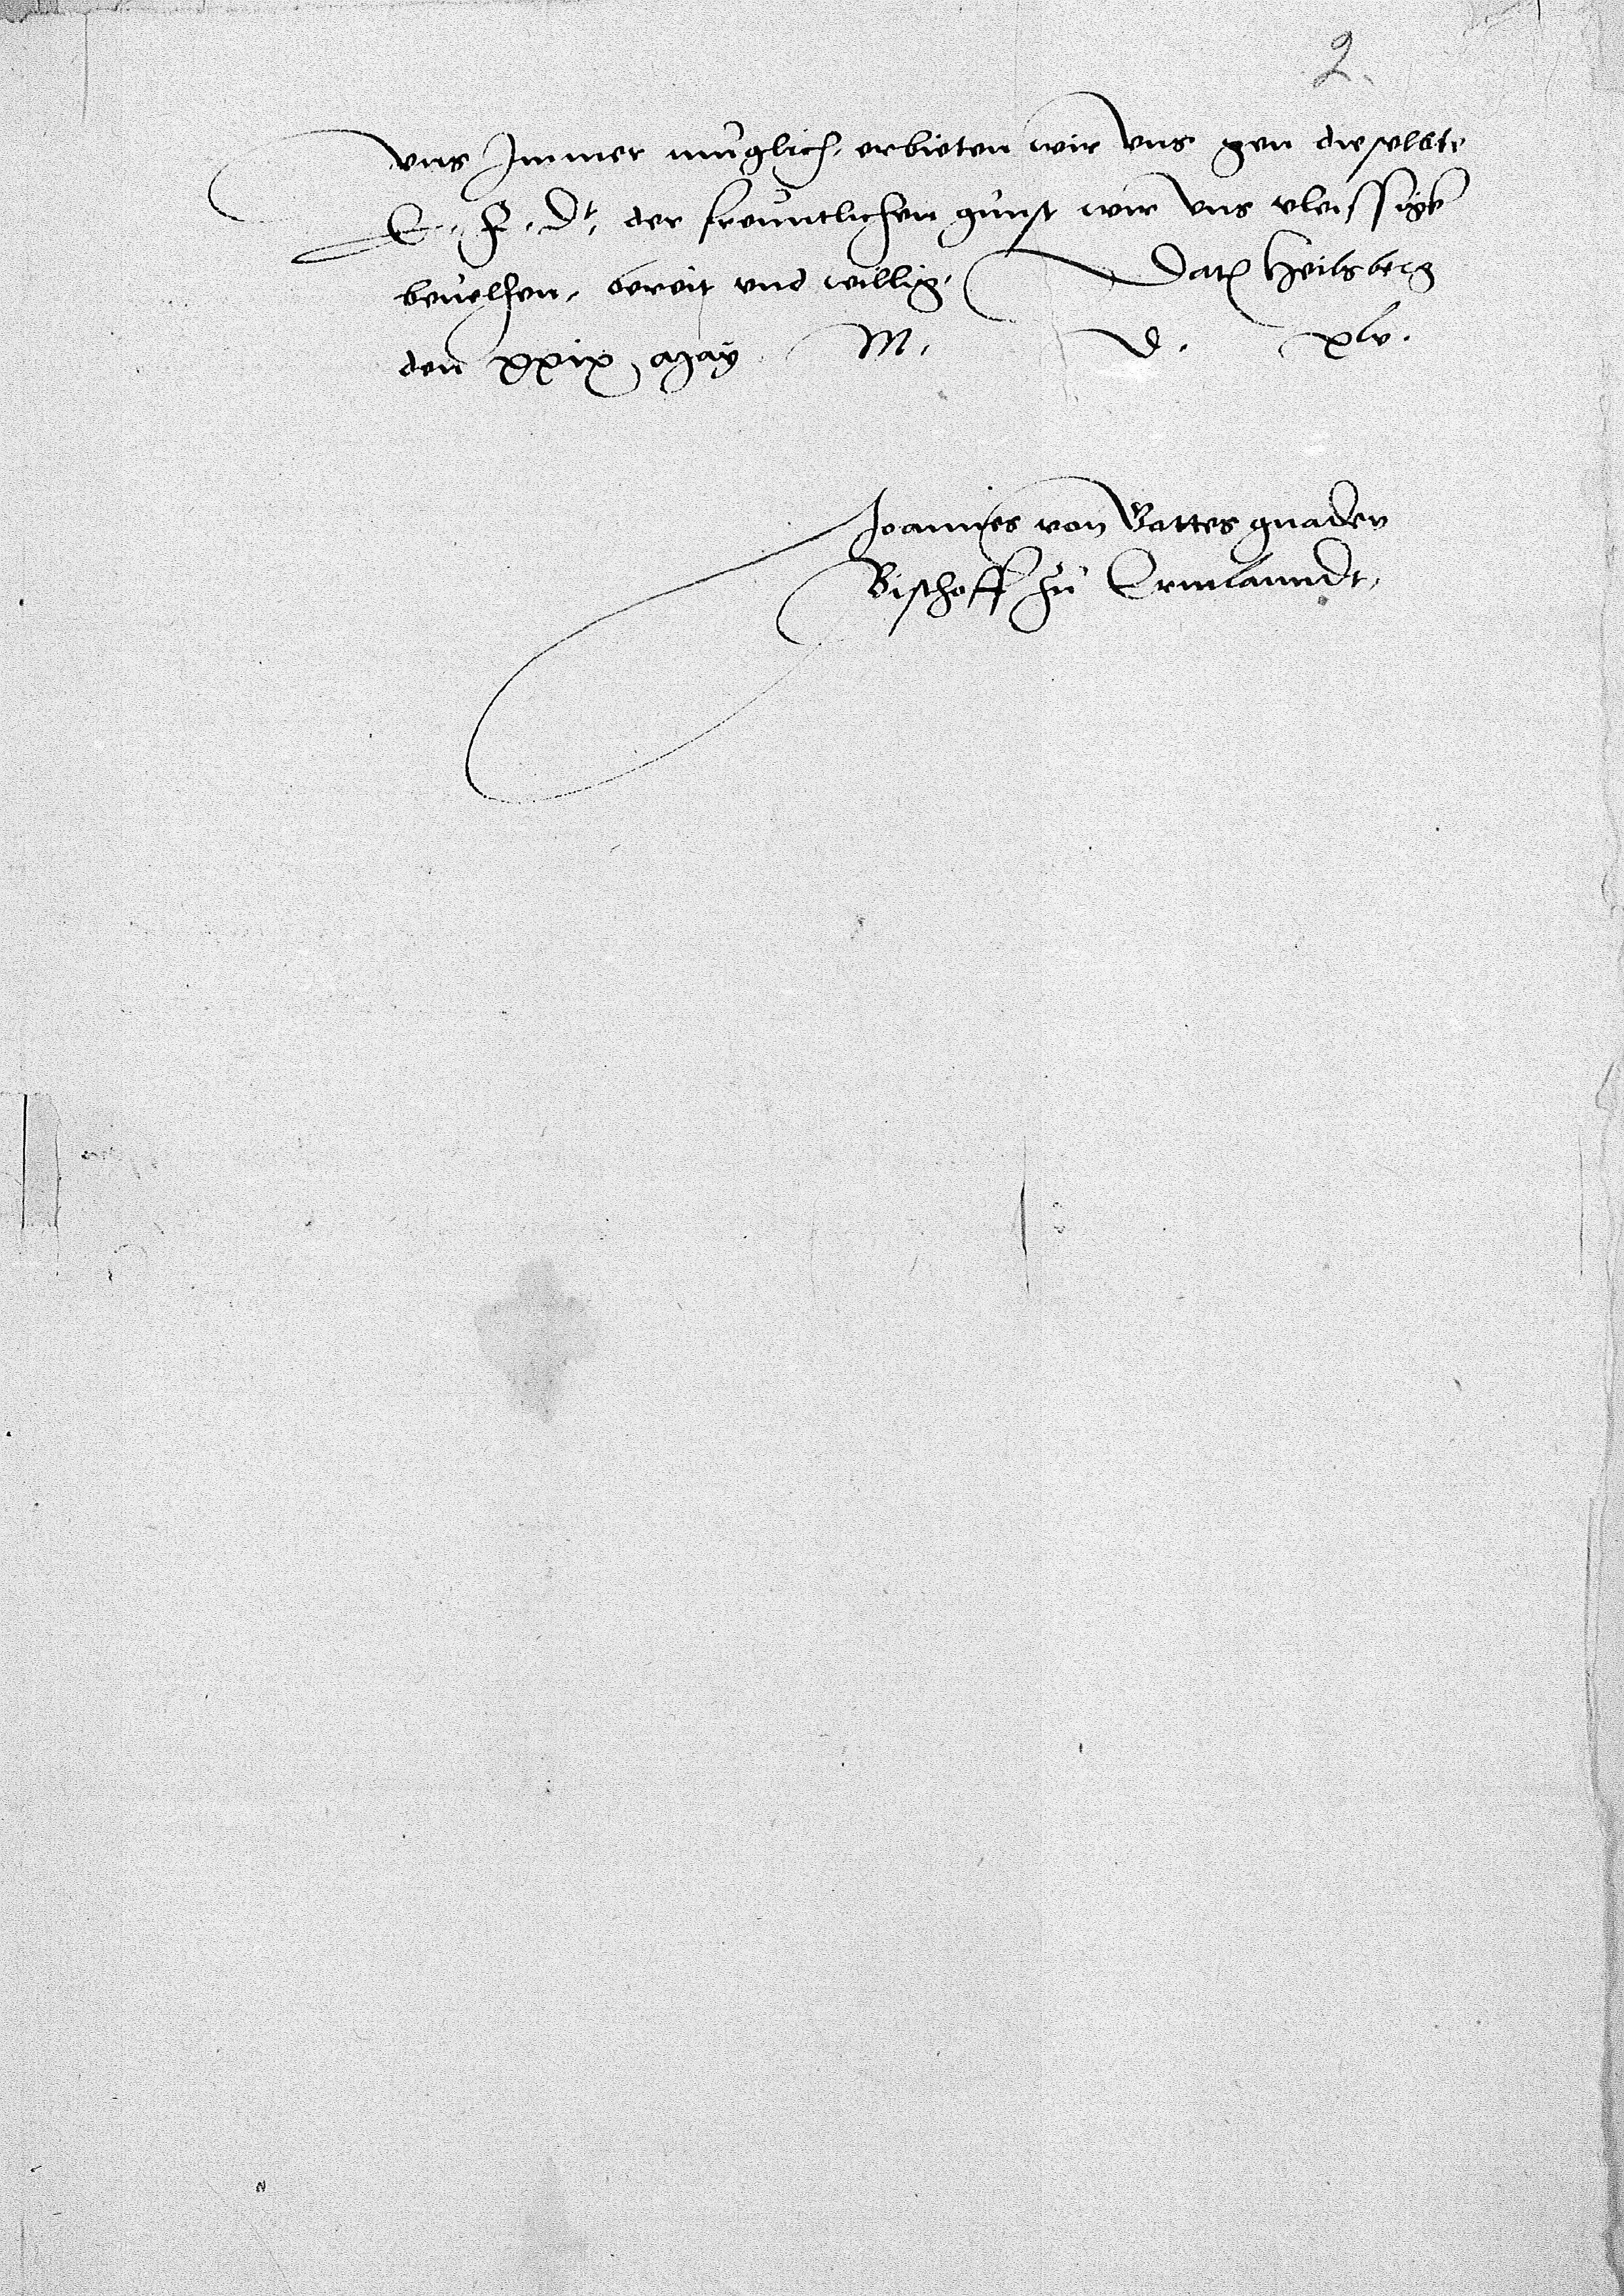 2.
vns Immer muglich, erbieten wir vns gen dieselbte
E. F. Dt, der freuntlichen gunst wir vns vleissigk
beuelhen, bereit vnd willig, Dat Heilsberg
den xxix may M. D. xlv.
Joannes von Gottes gnaden
Bischoff zu Ermlanndt,